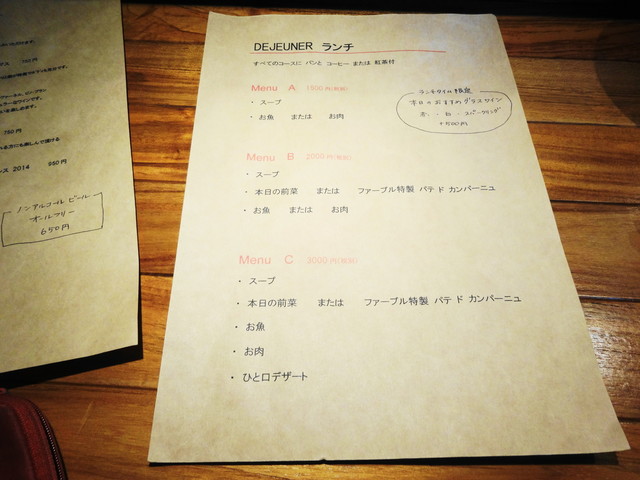 DEJEUNER ランチ
すべてのコースに パンと コーヒー または 紅茶付
Menu A 1500円(税別)
・ スープ
・ お魚 または お肉
ランチタイム限定
本日のおすすめグラスワイン
赤・白・スパークリング
+500円
Menu B 2000円(税別)
・ スープ
・ 本日の前菜 または ファーブル特製 パテ ド カンパーニュ
・ お魚 または お肉
Menu C 3000円(税別)
・ スープ
・ 本日の前菜 または ファーブル特製 パテ ド カンパーニュ
・ お魚
・ お肉
・ ひと口デザート
750円
2014 950円
ノンアルコールビール
オールフリー
650円